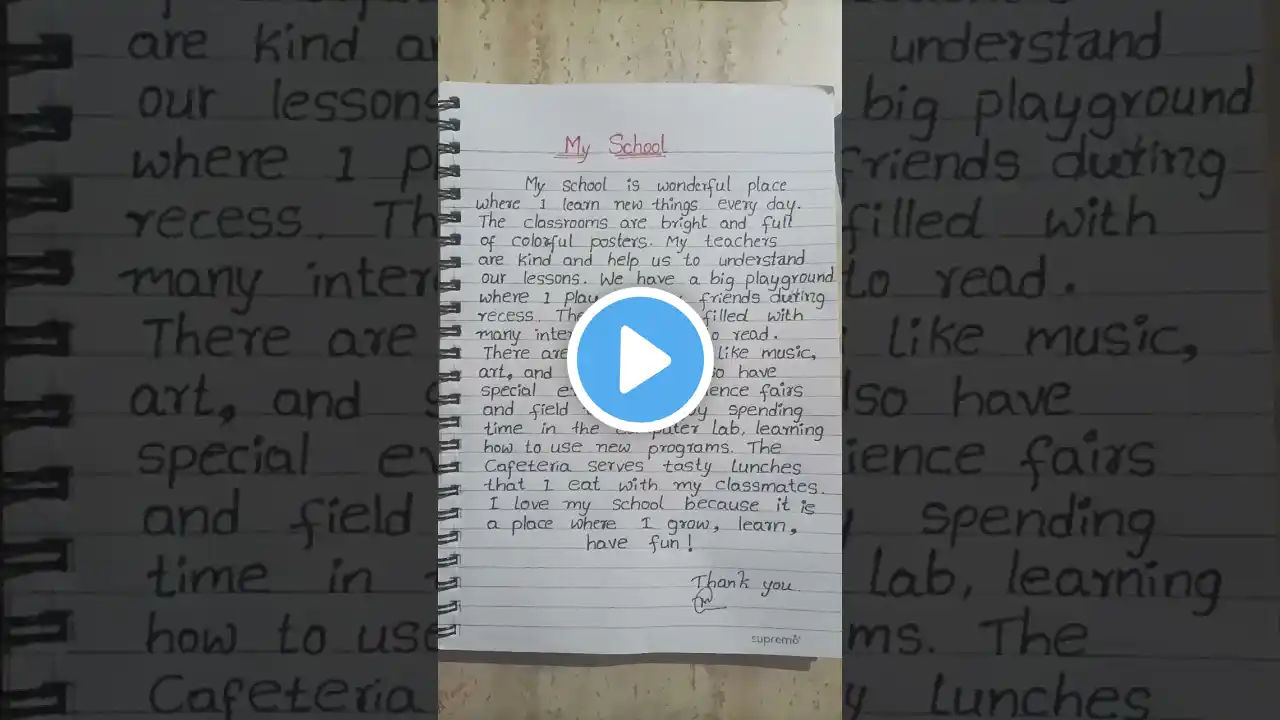 My School
My school is wonderful place
where 1 learn new things every day.
The classrooms are bright and full
of colorful posters. My teachers
are kind and help us to understand
our lessons. We have a big playground
where 1 play friends during
recess. The filled with
many to read.
There are like music,
art, and have
special fairs
and field spending
time in the computer lab, learning
how to use new programs. The
Cafeteria serves tasty lunches
that 1 eat with my classmates.
I love my school because it is
a place where I grow, learn,
have fun!
Thank you.
supremo